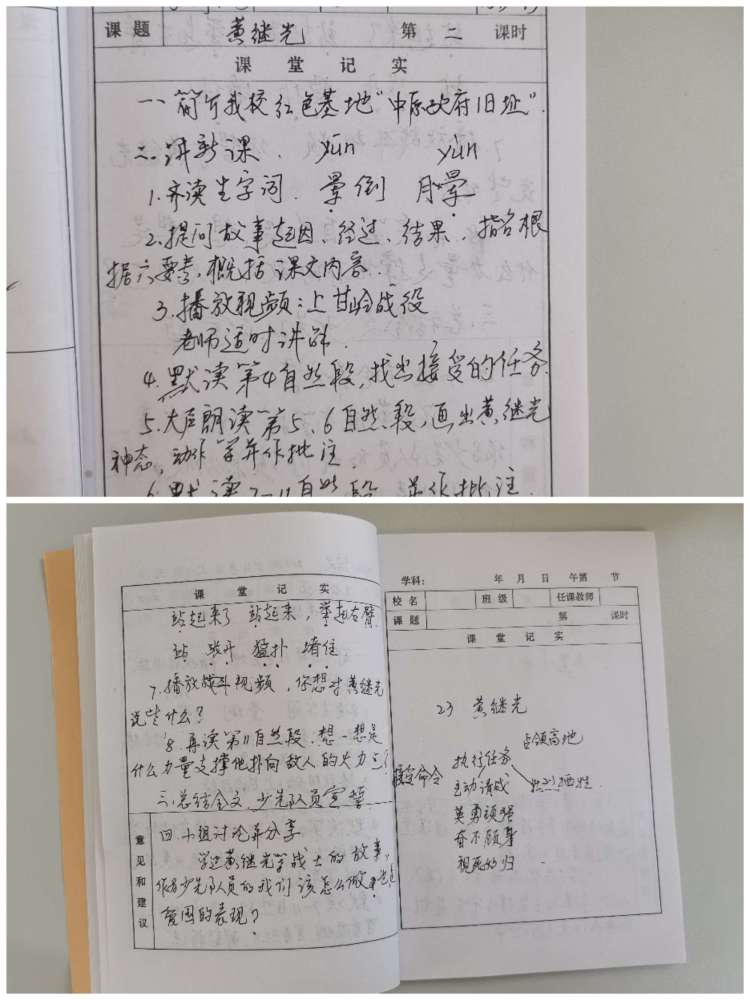 课题 黄继光 第 二 课时
课 堂 记 实
一、简介我校红色基地“中原政府旧址”.
二、讲新课. yūn yùn
1.齐读生字词. 晕倒 月晕
2.提问故事起因、经过、结果. 指名根
据六要素,概括课文内容.
3.播放视频:上甘岭战役
老师适时讲解.
4.默读第4自然段,找出接受的任务.
5.大声朗读第5、6自然段,画出黄继光
神态,动作等并作批注.
6.默读7-11自然段 并作批注.
课 堂 记 实
站起来了 站起来,举起右臂
站 张开 猛扑 堵住
7.播放战斗视频,你想对黄继光
说些什么?
8.再读第11自然段.想一想是
什么力量支撑他扑向敌人的火力点?
三.总结全文,少先队员宣誓
意见和建议
四.小组讨论并分享
学过黄继光等战士的故事,
作为少先队员的我们该怎么做
爱国的表现?
学科: 年 月 日 午第 节
校 名 班 级 任课教师
课 题 第 课时
课 堂 记 实
23 黄继光
占领高地
执行任务
接受命令
壮烈牺牲
主动请战
英勇顽强
奋不顾身
视死如归